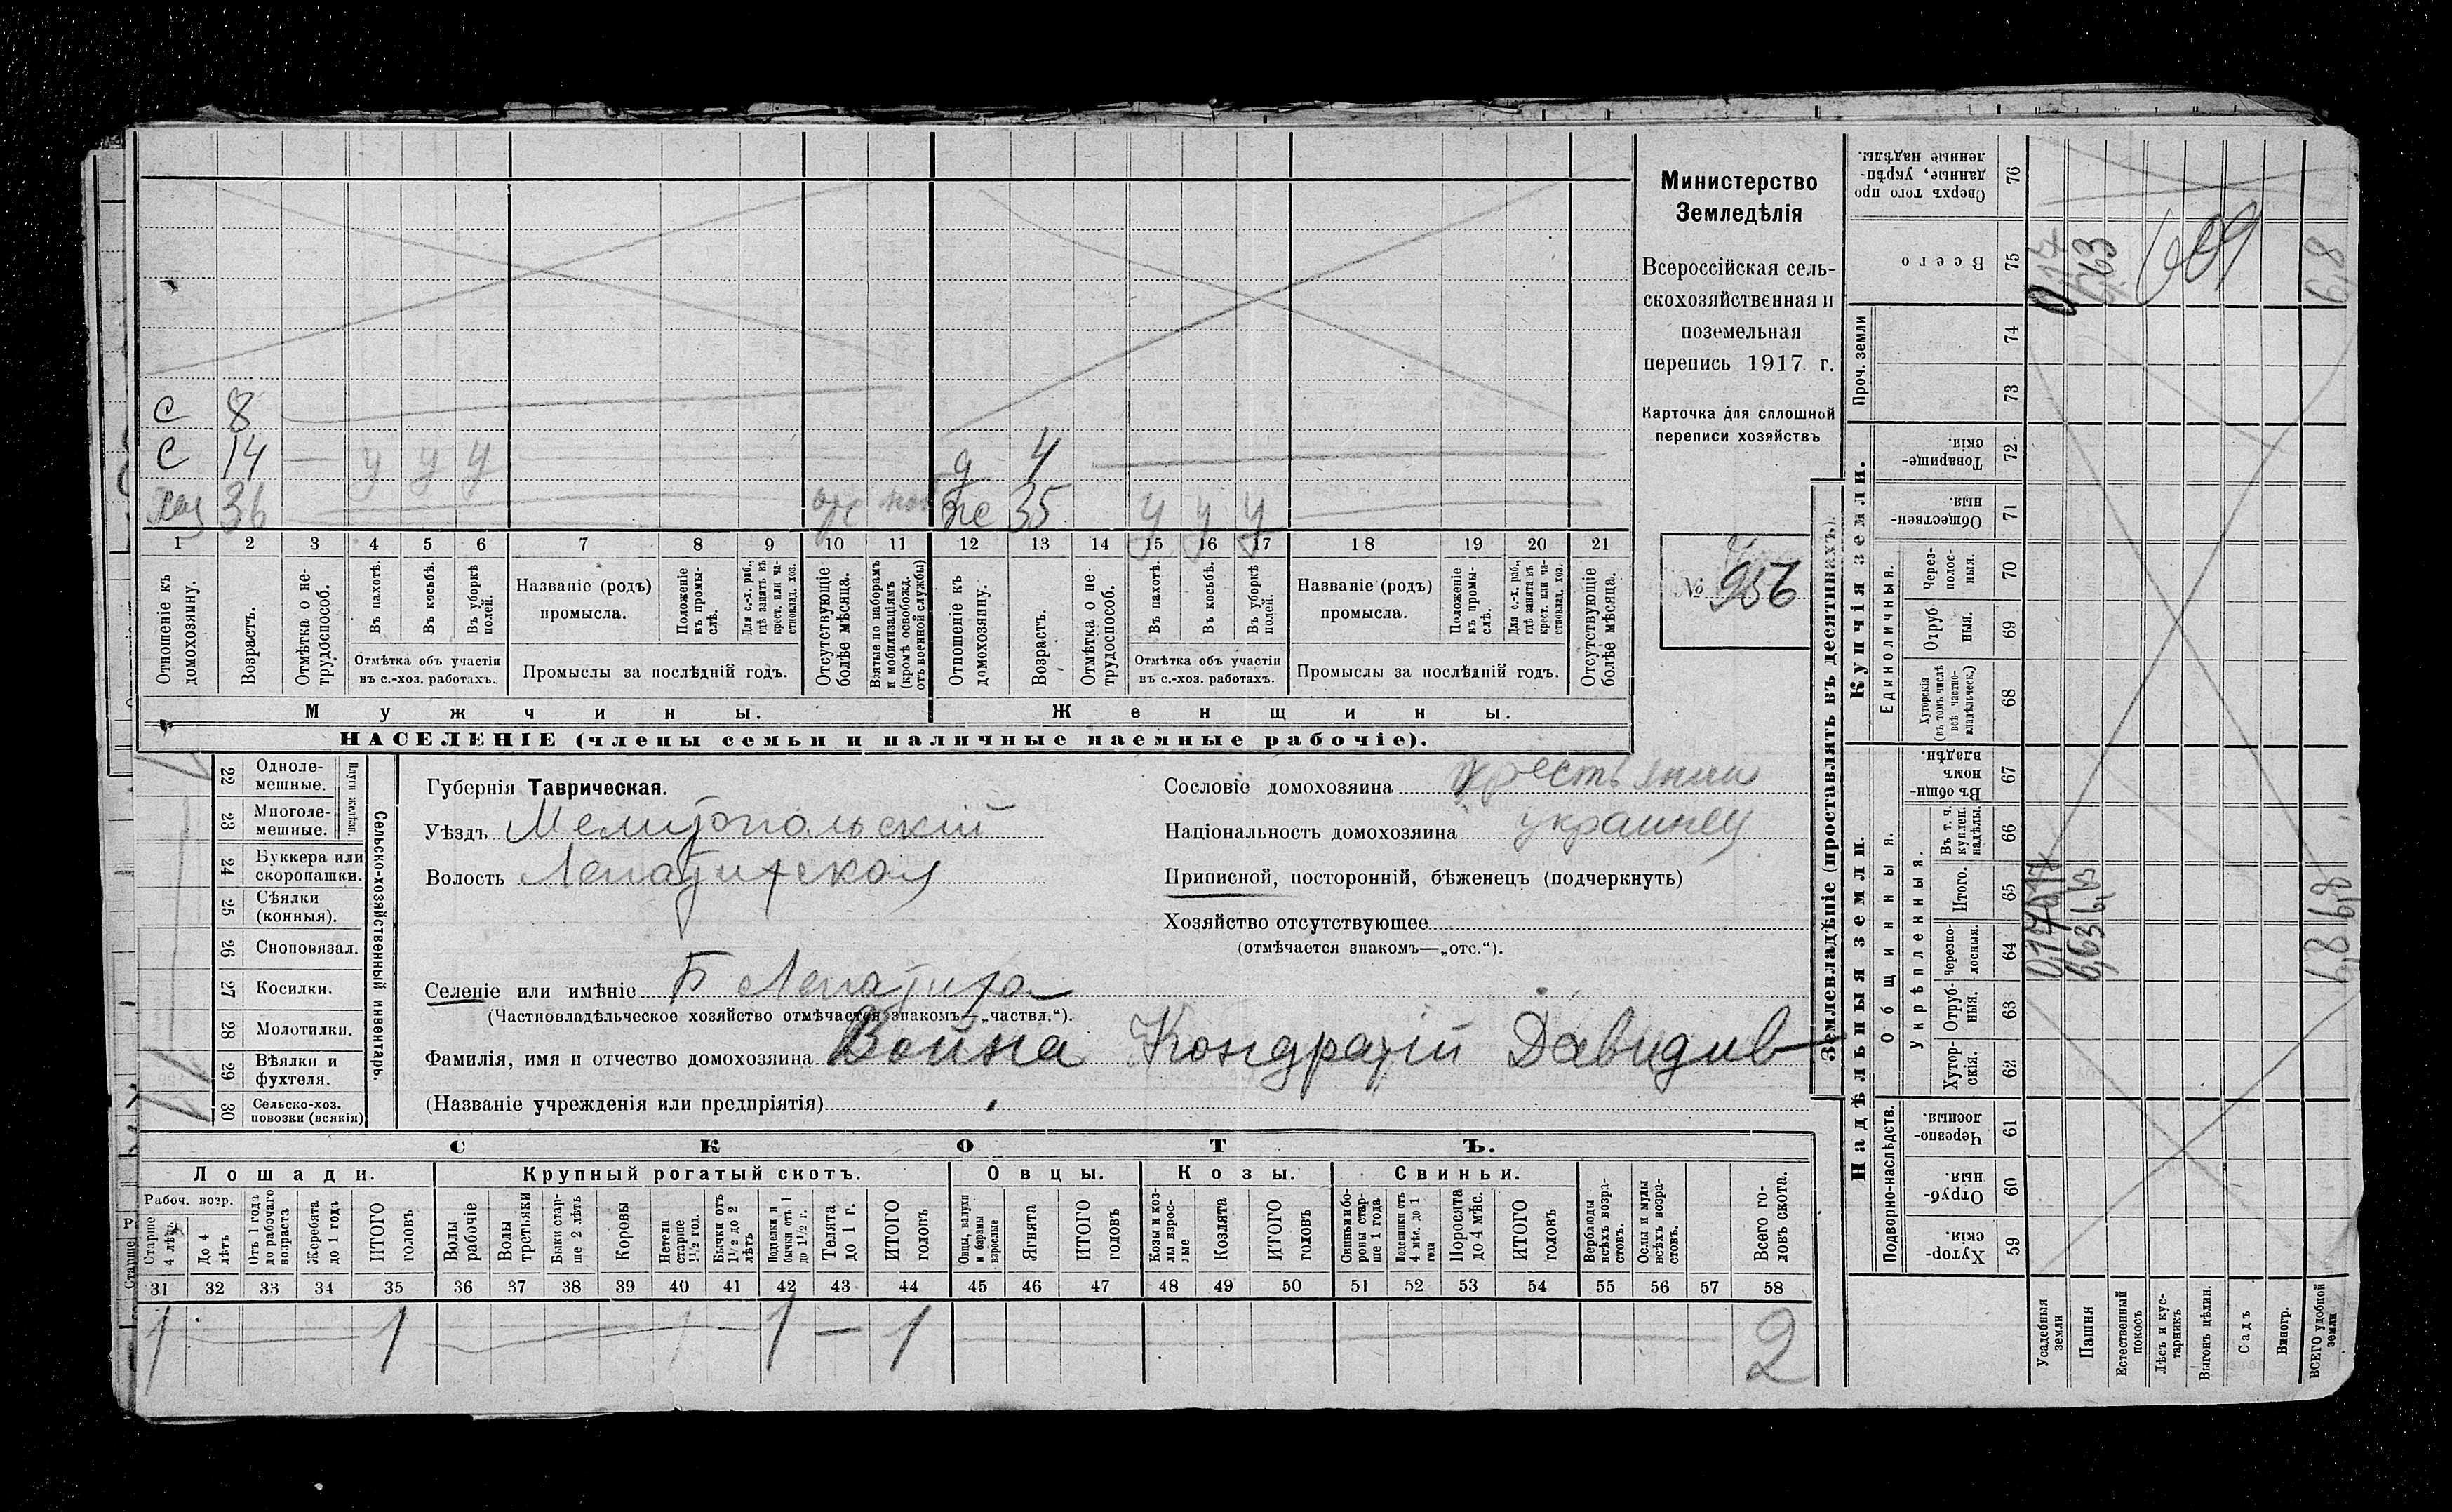 С 8
С 14 — у у у
д 4
хоз 36
же 35 у у у
1 2 3 4 5 6 7 8 9 10 11 12 13 14 15 16 17 18 19 20 21
Отношеніе къ домохозяину.
Возрастъ.
Отмѣтка о не-
трудоспособ.
Въ пахотѣ.
Въ косьбѣ.
Въ уборкѣ
полей.
Отмѣтка объ участіи
въ с.-хоз. работахъ.
Названіе (родъ)
промысла.
Положеніе
въ промы-
слѣ.
Для с.-х. раб.,
гдѣ занятъ въ
крест. или ча-
стновлад. хоз.
Промыслы за послѣдній годъ.
Отсутствующіе
болѣе мѣсяца.
Взятые по наборамъ
и мобилизаціямъ
(кромѣ освобожд.
отъ военной службы)
Отношеніе къ
домохозяину.
Возрастъ.
Отмѣтка о не-
трудоспособ.
Въ пахотѣ.
Въ косьбѣ.
Въ уборкѣ
полей.
Отмѣтка объ участіи
въ с.-хоз. работахъ.
Названіе (родъ)
промысла.
Положеніе
въ промы-
слѣ.
Для с.-х. раб.,
гдѣ занята въ
крест. или ча-
стновлад. хоз.
Промыслы за послѣдній годъ.
Отсутствующіе
болѣе мѣсяца.
Мужчины.
Женщины.
НАСЕЛЕНІЕ (члены семьи и наличные наемные рабочіе).
Министерство
Земледѣлія
Всероссійская сель-
скохозяйственная и
поземельная
перепись 1917 г.
Карточка для сплошной
переписи хозяйствъ
№ 956
22 Одноле-
мешные.
23 Многоле-
мешные.
Плуги желѣзн.
24 Буккера или
скоропашки.
25 Сѣялки
(конныя).
26 Сноповязал.
27 Косилки.
28 Молотилки.
29 Вѣялки и
фухтеля.
30 Сельско-хоз.
повозки (всякія)
Сельско-хозяйственный инвентарь.
Губернія Таврическая.
Уѣздъ Мелитопольскій
Волость Лепатихская
Селеніе или имѣніе Б Лепатиха
(Частновладѣльческое хозяйство отмѣчается знакомъ—„частвл.“).
Фамилія, имя и отчество домохозяина Война Кондратій Давидив
(Названіе учрежденія или предпріятія)
Сословіе домохозяина крестьянин
Національность домохозяина украинец
Приписной, посторонній, бѣженецъ (подчеркнуть)
Хозяйство отсутствующее
(отмѣчается знакомъ—„отс.“).
СКОТЪ.
Лошади. Крупный рогатый скотъ. Овцы. Козы. Свиньи.
Рабоч. возр.
Старше
4 лѣтъ
До 4
лѣтъ
Отъ 1 года
до рабочаго
возраста
Жеребята
до 1 года
ИТОГО
головъ
Волы
рабочіе
Волы
третьяки
Быки стар-
ше 2 лѣтъ
Коровы
Нетели
старше
1½ год.
Бычки отъ
1½ до 2
лѣтъ
Подтелки и
бычки отъ 1
до 1½ г.
Телята
до 1 г.
ИТОГО
головъ
Овцы, валухи
и бараны
взрослые
Ягнята
ИТОГО
головъ
Козы и коз-
лы взрос-
лые
Козлята
ИТОГО
головъ
Свиньи и бо-
ровы стар-
ше 1 года
Подсвинки отъ
4 мѣс. до 1
года
Поросята
до 4 мѣс.
ИТОГО
головъ
Верблюды
всѣхъ возра-
стовъ.
Ослы и мулы
всѣхъ возра-
стовъ.
Всего го-
ловъ скота.
31 32 33 34 35 36 37 38 39 40 41 42 43 44 45 46 47 48 49 50 51 52 53 54 55 56 57 58
1 1 1 — 1 2
Землевладѣніе (проставлять въ десятинахъ).
Надѣльныя земли.
Купчія земли.
Проч. земли
Сверхъ того про
данные, укрѣп-
ленные надѣлы.
76
Всего
75
74
73
Товарище-
скія.
72
Обществен-
ныя.
71
Единоличныя.
Через-
полос-
ныя.
70
Отруб
ныя.
69
Хуторскія
(въ томъ числѣ
всѣ частно-
владѣльческ.)
68
Въ общи-
номъ
владѣн.
67
Общинныя.
Укрѣпленныя.
Въ т. ч.
куплен.
надѣлы
66
Итого.
65
Черезпо-
лосныя.
64
Отруб-
ныя.
63
Хутор-
скія.
62
Подворно-наслѣдств.
Черезпо-
лосныя.
61
Отруб-
ныя.
60
Хутор-
скія.
59
Усадебныя
земли
0,17 0,17 0,17
Пашня
6,63 6,63 6,63
Естественный
покосъ
Лѣсъ и кус-
тарникъ
Выгонъ цѣлин.
Садъ
Виногр.
ВСЕГО удобной
земли
6,8 6,8 6,8